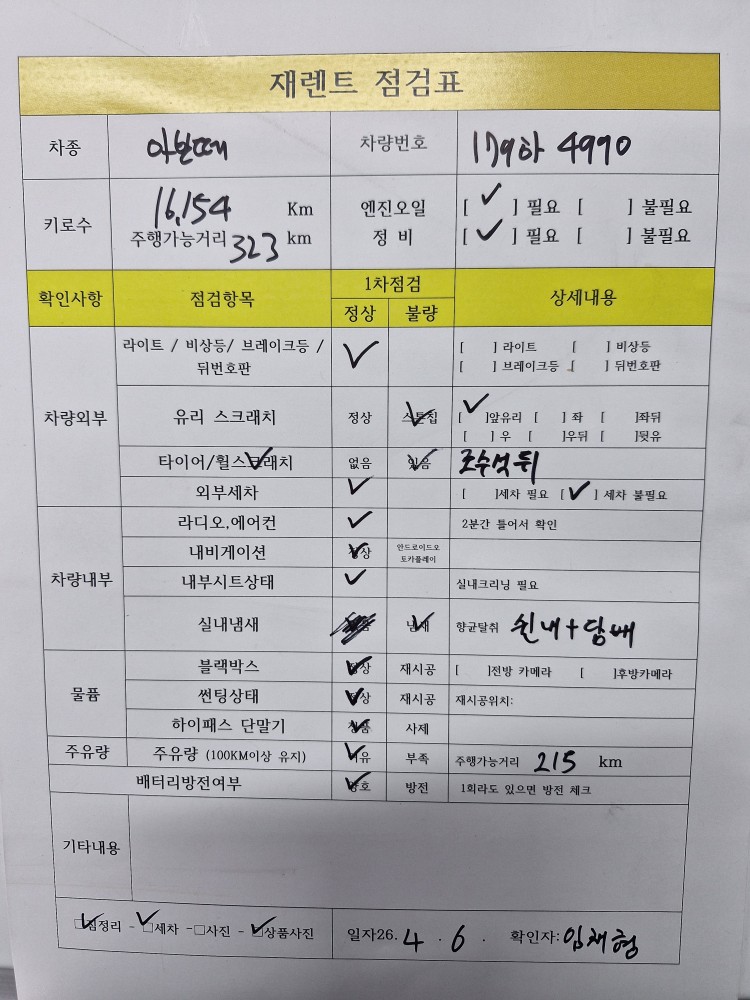 재렌트 점검표
차종 아반떼 차량번호 179하 4990
키로수 16,154 Km 엔진오일 [ ✓ ] 필요 [ ] 불필요
주행가능거리 323 km 정 비 [ ✓ ] 필요 [ ] 불필요
확인사항 점검항목 1차점검 상세내용
정상 불량
차량외부 라이트 / 비상등/ 브레이크등 / ✓ [ ] 라이트 [ ] 비상등
뒤번호판 [ ] 브레이크등 [ ] 뒤번호판
유리 스크래치 정상 스톤칩 ✓ [ ✓ ]앞유리 [ ] 좌 [ ]좌뒤
[ ] 우 [ ]우뒤 [ ]뒷유
타이어/휠스크래치 ✓ 없음 있음 ✓ 조수석 뒤
외부세차 ✓ [ ]세차 필요 [ ✓ ] 세차 불필요
차량내부 라디오,에어컨 ✓ 2분간 틀어서 확인
내비게이션 정상 ✓ 안드로이드오
토카플레이
내부시트상태 ✓ 실내크리닝 필요
실내냄새 냄새 ✓ 향균탈취 쉰내+담배
물품 블랙박스 정상 ✓ 재시공 [ ]전방 카메라 [ ]후방카메라
썬팅상태 정상 ✓ 재시공 재시공위치:
하이패스 단말기 정품 ✓ 사제
주유량 주유량 (100KM이상 유지) 여유 ✓ 부족 주행가능거리 215 km
배터리방전여부 양호 ✓ 방전 1회라도 있으면 방전 체크
기타내용
☑짐정리 - ☑세차 -□사진 - ☑상품사진 일자26. 4 . 6 . 확인자: 임채형